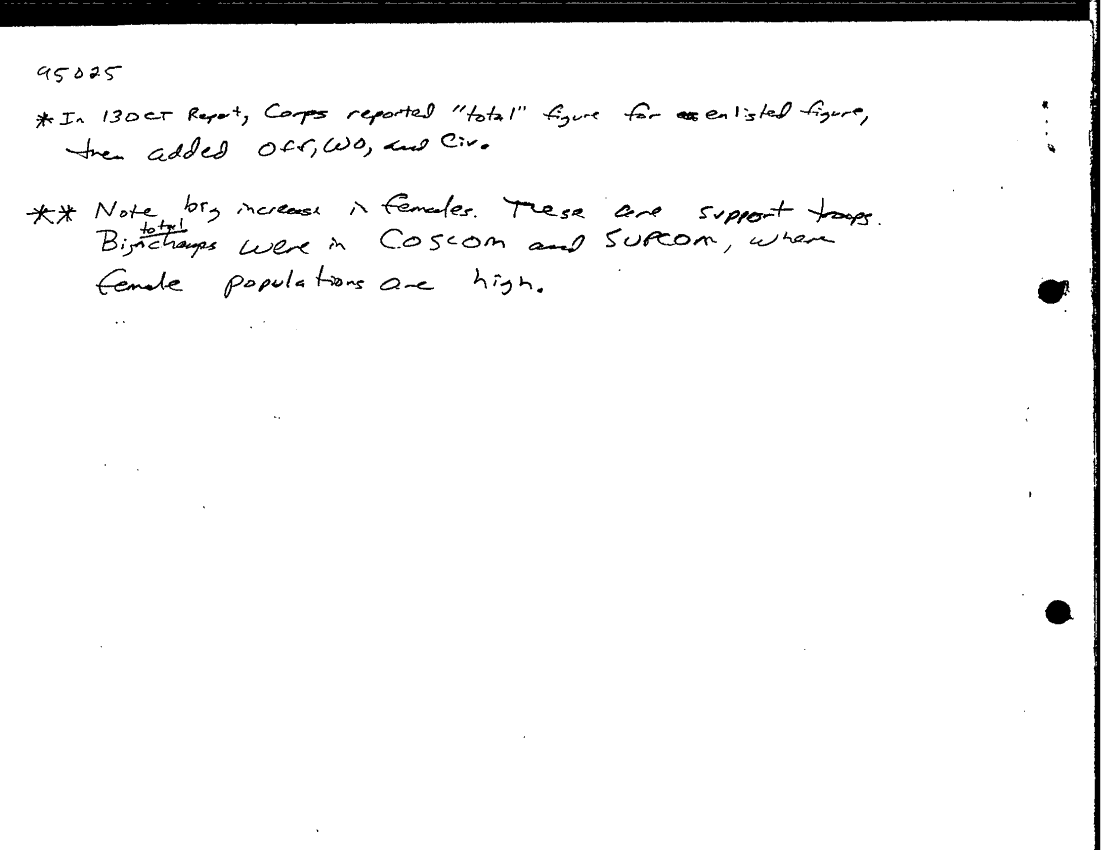 95025
*In 13OCT Report, Corps reported "total" figure for enlisted figure,
then added Off, WO, and Civ.
** Note big increase in females. These are support troops.
Big total changes were in COSCOM and SUPCOM, where
female populations are high.